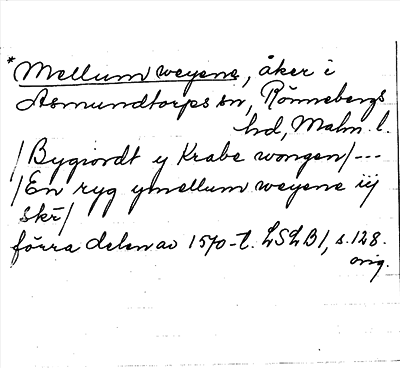 * Mellum weyene, åker i
Asmundtorps sn, Rönnebergs
hd, Malm. l.
/Bygiordt y Krabe wongen/---
/En ryg ymellum weyene iij
skr/
förra delen av 1570-t. LSLB1, s. 128.
orig.